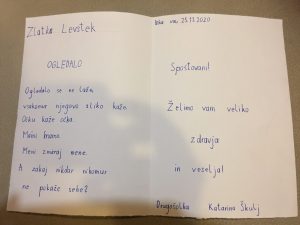 Zlatka Levstek
OGLEDALO
Ogledalo se ne laže,
vsakomur njegovo sliko kaže.
Očku kaže očka.
Mami mamo.
Meni zmeraj mene.
A zakaj nikdar nikomur
ne pokaže sebe?
25.11.2020
Spoštovani!
Želimo vam veliko
zdravja
in veselja!
Drugošolka Katarina Škulj